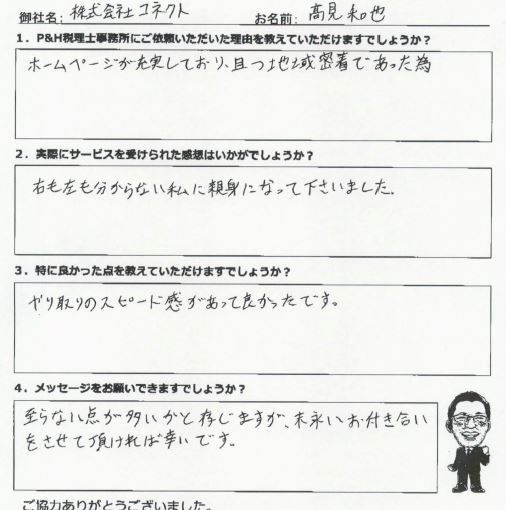 御社名：株式会社コネクト お名前：高見和也
1．P&H税理士事務所にご依頼いただいた理由を教えていただけますでしょうか？
ホームページが充実しており、且つ地域密着であった為
2．実際にサービスを受けられた感想はいかがでしょうか？
右も左も分からない私に親身になって下さいました。
3．特に良かった点を教えていただけますでしょうか？
やり取りのスピード感があって良かったです。
4．メッセージをお願いできますでしょうか？
至らない点が多いかと存じますが、末永いお付き合い
をさせて頂ければ幸いです。
ご協力ありがとうございました。